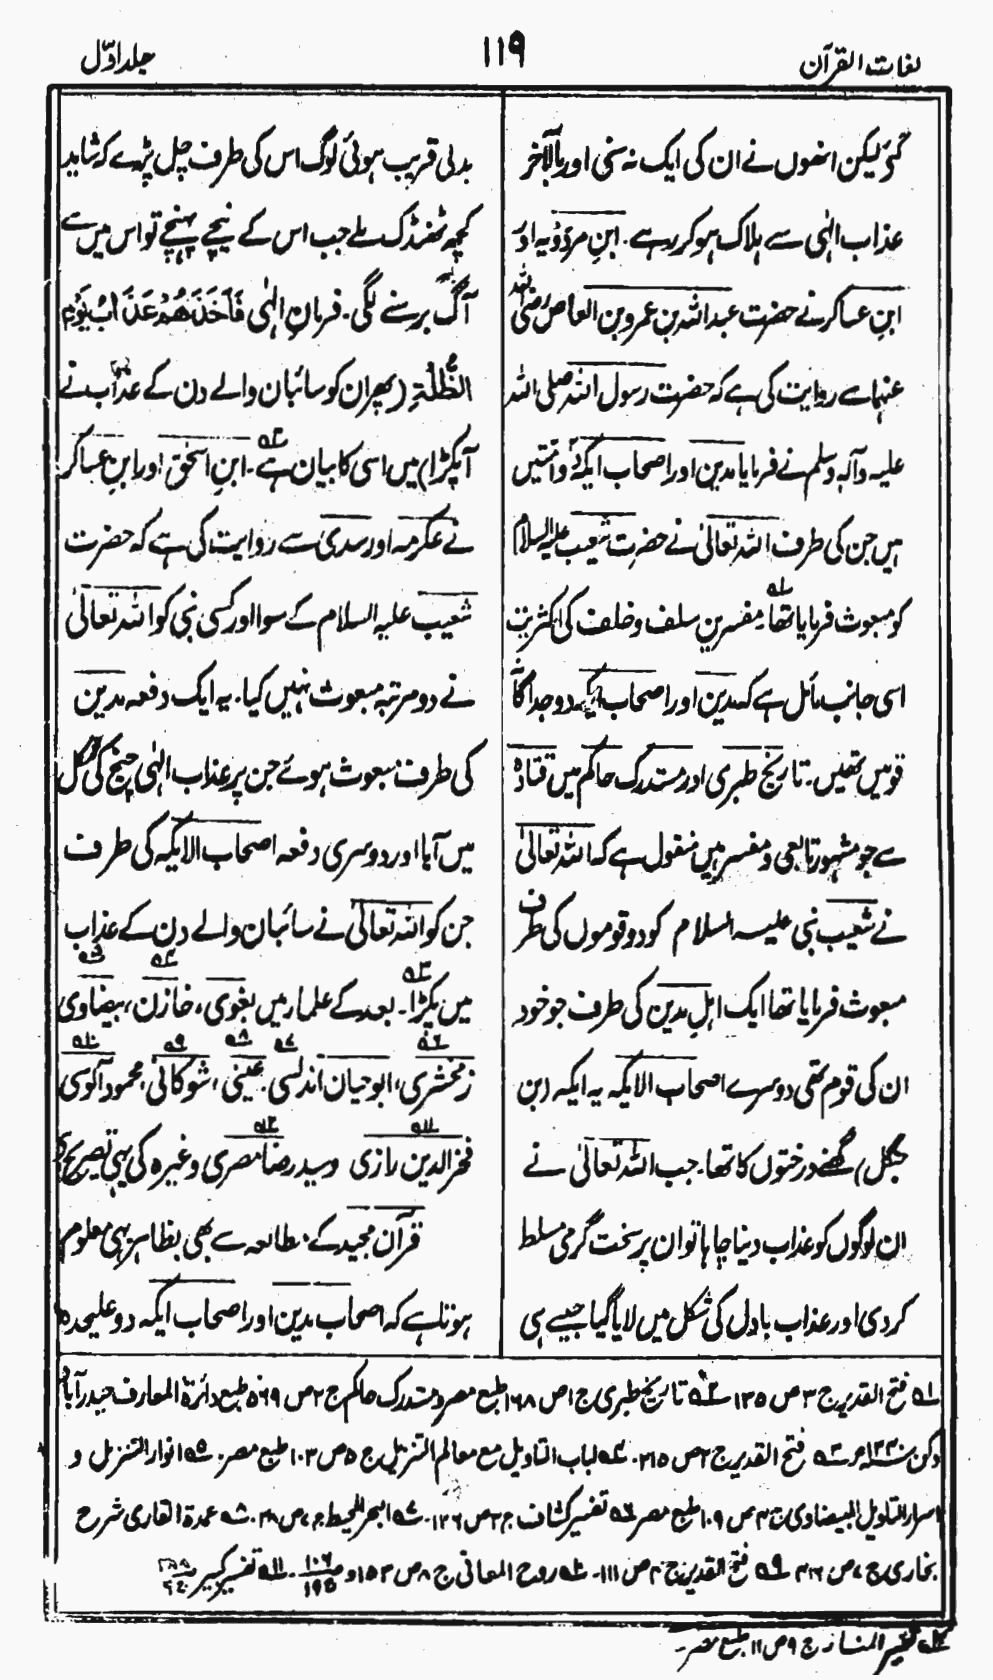 لغات القرآن
۱۱۹
جلد اوّل
گئے لیکن انھوں نے ان کی ایک نہ سنی اور بالآخر
عذاب الٰہی سے ہلاک ہو کر رہے۔ ابنِ مردویہ اور
ابنِ عساکر نے حضرت عبداللہ بن عمرو بن العاص رضی اللہ
عنہما سے روایت کی ہے کہ حضرت رسول اللہ صلی اللہ
علیہ وآلہٖ وسلم نے فرمایا مدین اور اصحاب ایکہ دو امتیں
ہیں جن کی طرف اللہ تعالیٰ نے حضرت شعیب علیہ السلام
کو مبعوث فرمایا تھا۔ ۱ مفسرینِ سلف و خلف کی اکثریت
اسی جانب مائل ہے کہ مدین اور اصحاب ایکہ دو جداگانہ
قومیں تھیں۔ تاریخ طبری اور مستدرک حاکم میں قتادہ
سے جو مشہور تابعی و مفسر ہیں منقول ہے کہ اللہ تعالیٰ
نے شعیب نبی علیہ السلام کو دو قوموں کی طرف
مبعوث فرمایا تھا ایک اہلِ مدین کی طرف جو خود
ان کی قوم تھی دوسرے اصحاب الایکہ یہ ایکہ (بن
جنگل) گھنے درختوں کا تھا۔ جب اللہ تعالیٰ نے
ان لوگوں کو عذاب دینا چاہا تو ان پر سخت گرمی مسلط
کر دی اور عذاب بادل کی شکل میں لایا گیا جیسے ہی
بدلی قریب ہوئی لوگ اس کی طرف چل پڑے کہ شاید
کچھ ٹھنڈک ملے جب اس کے نیچے پہنچے تو اس میں سے
آگ برسنے لگی۔ فرمانِ الٰہی فَاَخَذَهُمْ عَذَابُ يَوْمِ
الظُّلَّةِ (پھر ان کو سائبان والے دن کے عذاب نے
آپکڑا) میں اسی کا بیان ہے۔ ۲ ابنِ اسحٰق اور ابنِ عساکر
نے عکرمہ اور سدی سے روایت کی ہے کہ حضرت
شعیب علیہ السلام کے سوا اور کسی نبی کو اللہ تعالیٰ
نے دو مرتبہ مبعوث نہیں کیا۔ یہ ایک دفعہ مدین
کی طرف مبعوث ہوئے جن پر عذاب الٰہی چیخ کی شکل
میں آیا اور دوسری دفعہ اصحاب الایکہ کی طرف
جن کو اللہ تعالیٰ نے سائبان والے دن کے عذاب
میں پکڑا۔ ۳ بعد کے علماء میں بغوی، خازن، ۴ بیضاوی، ۵
زمخشری، ۶ ابو حیان اندلسی، ۷ عینی، ۸ شوکانی، ۹ محمود آلوسی ۱۰
فخر الدین رازی ۱۱ و سید رضا مصری ۱۲ وغیرہ کی یہی تصریح ہے
قرآن مجید کے مطالعہ سے بھی بظاہر یہی معلوم
ہوتا ہے کہ اصحاب مدین اور اصحاب ایکہ دو علیحدہ
۱ فتح القدیر ج ۳ ص ۱۳۵ ۲ تاریخ طبری ج ۱ ص ۱۶۸ طبع مصر و مستدرک حاکم ج ۲ ص ۵۶۹ طبع دائرۃ المعارف حیدرآباد
دکن ۳ فتح القدیر ج ۲ ص ۲۱۵۔ ۴ لباب التاویل مع معالم التنزیل ج ۵ ص ۱۰۳ طبع مصر۔ ۵ انوار التنزیل و
اسرار التاویل للبیضاوی ج ۴ ص ۱۰۹ طبع مصر ۶ تفسیر کشاف ج ۲ ص ۱۲۶۔ ۷ البحر المحیط ج ۷ ص ۳۸۔ ۸ عمدۃ القاری شرح
بخاری ج ۷ ص ۴۲۶ ۹ فتح القدیر ج ۴ ص ۱۱۱۔ ۱۰ روح المعانی ج ۸ ص ۱۵۳ و ۱۰۶/۱۹۵۔ ۱۱ تفسیر کبیر
۱۲ تفسیر المنار ج ۹ ص ۱۱ طبع مصر۔